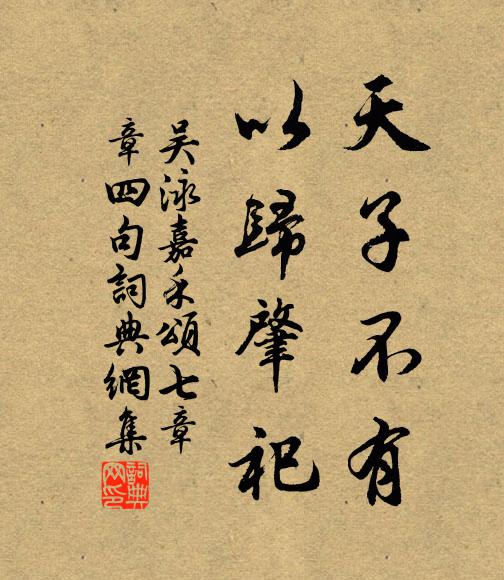 天子不有
以歸肇祀
吴泳嘉禾頌七章
章四句詞典網集
詞典網印